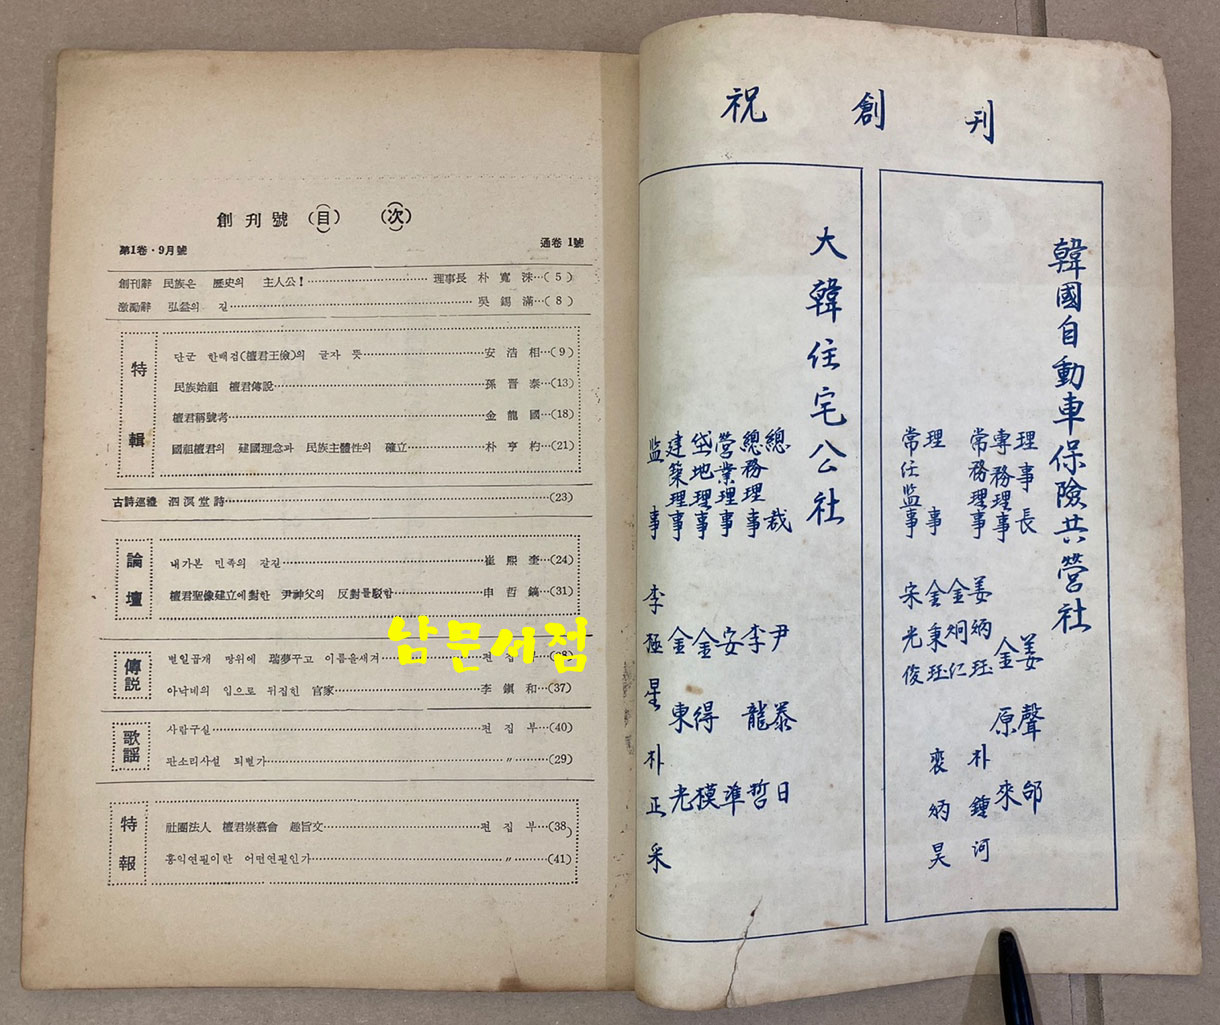 創刊號 (目) (次)
第1卷・9月號
通卷 1號
創刊辭 民族은 歷史의 主人公!……理事長 朴寬洙…( 5 )
激勵辭 弘益의 길……吳錫滿…( 8 )
特輯
단군 한배검(檀君王儉)의 글자 뜻……安浩相…( 9 )
民族始祖 檀君傳說……孫晋泰…(13)
檀君稱號考……金龍國…(18)
國祖檀君의 建國理念과 民族主體性의 確立……朴亨杓…(21)
古詩巡禮 泗溟堂詩……(23)
論壇
내가본 민족의 갈길……崔熙奎…(24)
檀君聖像建立에對한 尹神父의 反對를駁함……申哲鎬…(31)
傳説
별일곱개 망위에 瑞夢꾸고 이름을새겨……편집
아낙네의 입으로 뒤집힌 官家……李鎭和…(37)
歌謡
사람구실……편집부…(40)
판소리사설 퇴별가……〃…(29)
特報
社團法人 檀君崇慕會 趣旨文……편집부…(38)
홍익연필이란 어떤연필인가……〃…(41)
남문서점
祝創刊
韓國自動車保險共營社
理事長 姜聲邰
專務理事 金原來
常務理事 姜炳珏 朴鍾河
金炯仁
理事 金秉珏 裵炳昊
常任监事 宋光俊
大韓住宅公社
總裁 尹泰日
總務理事 李龍哲
營業理事 安準
垈地理事 金得模
建築理事 金東光
监事 李極星 朴正采